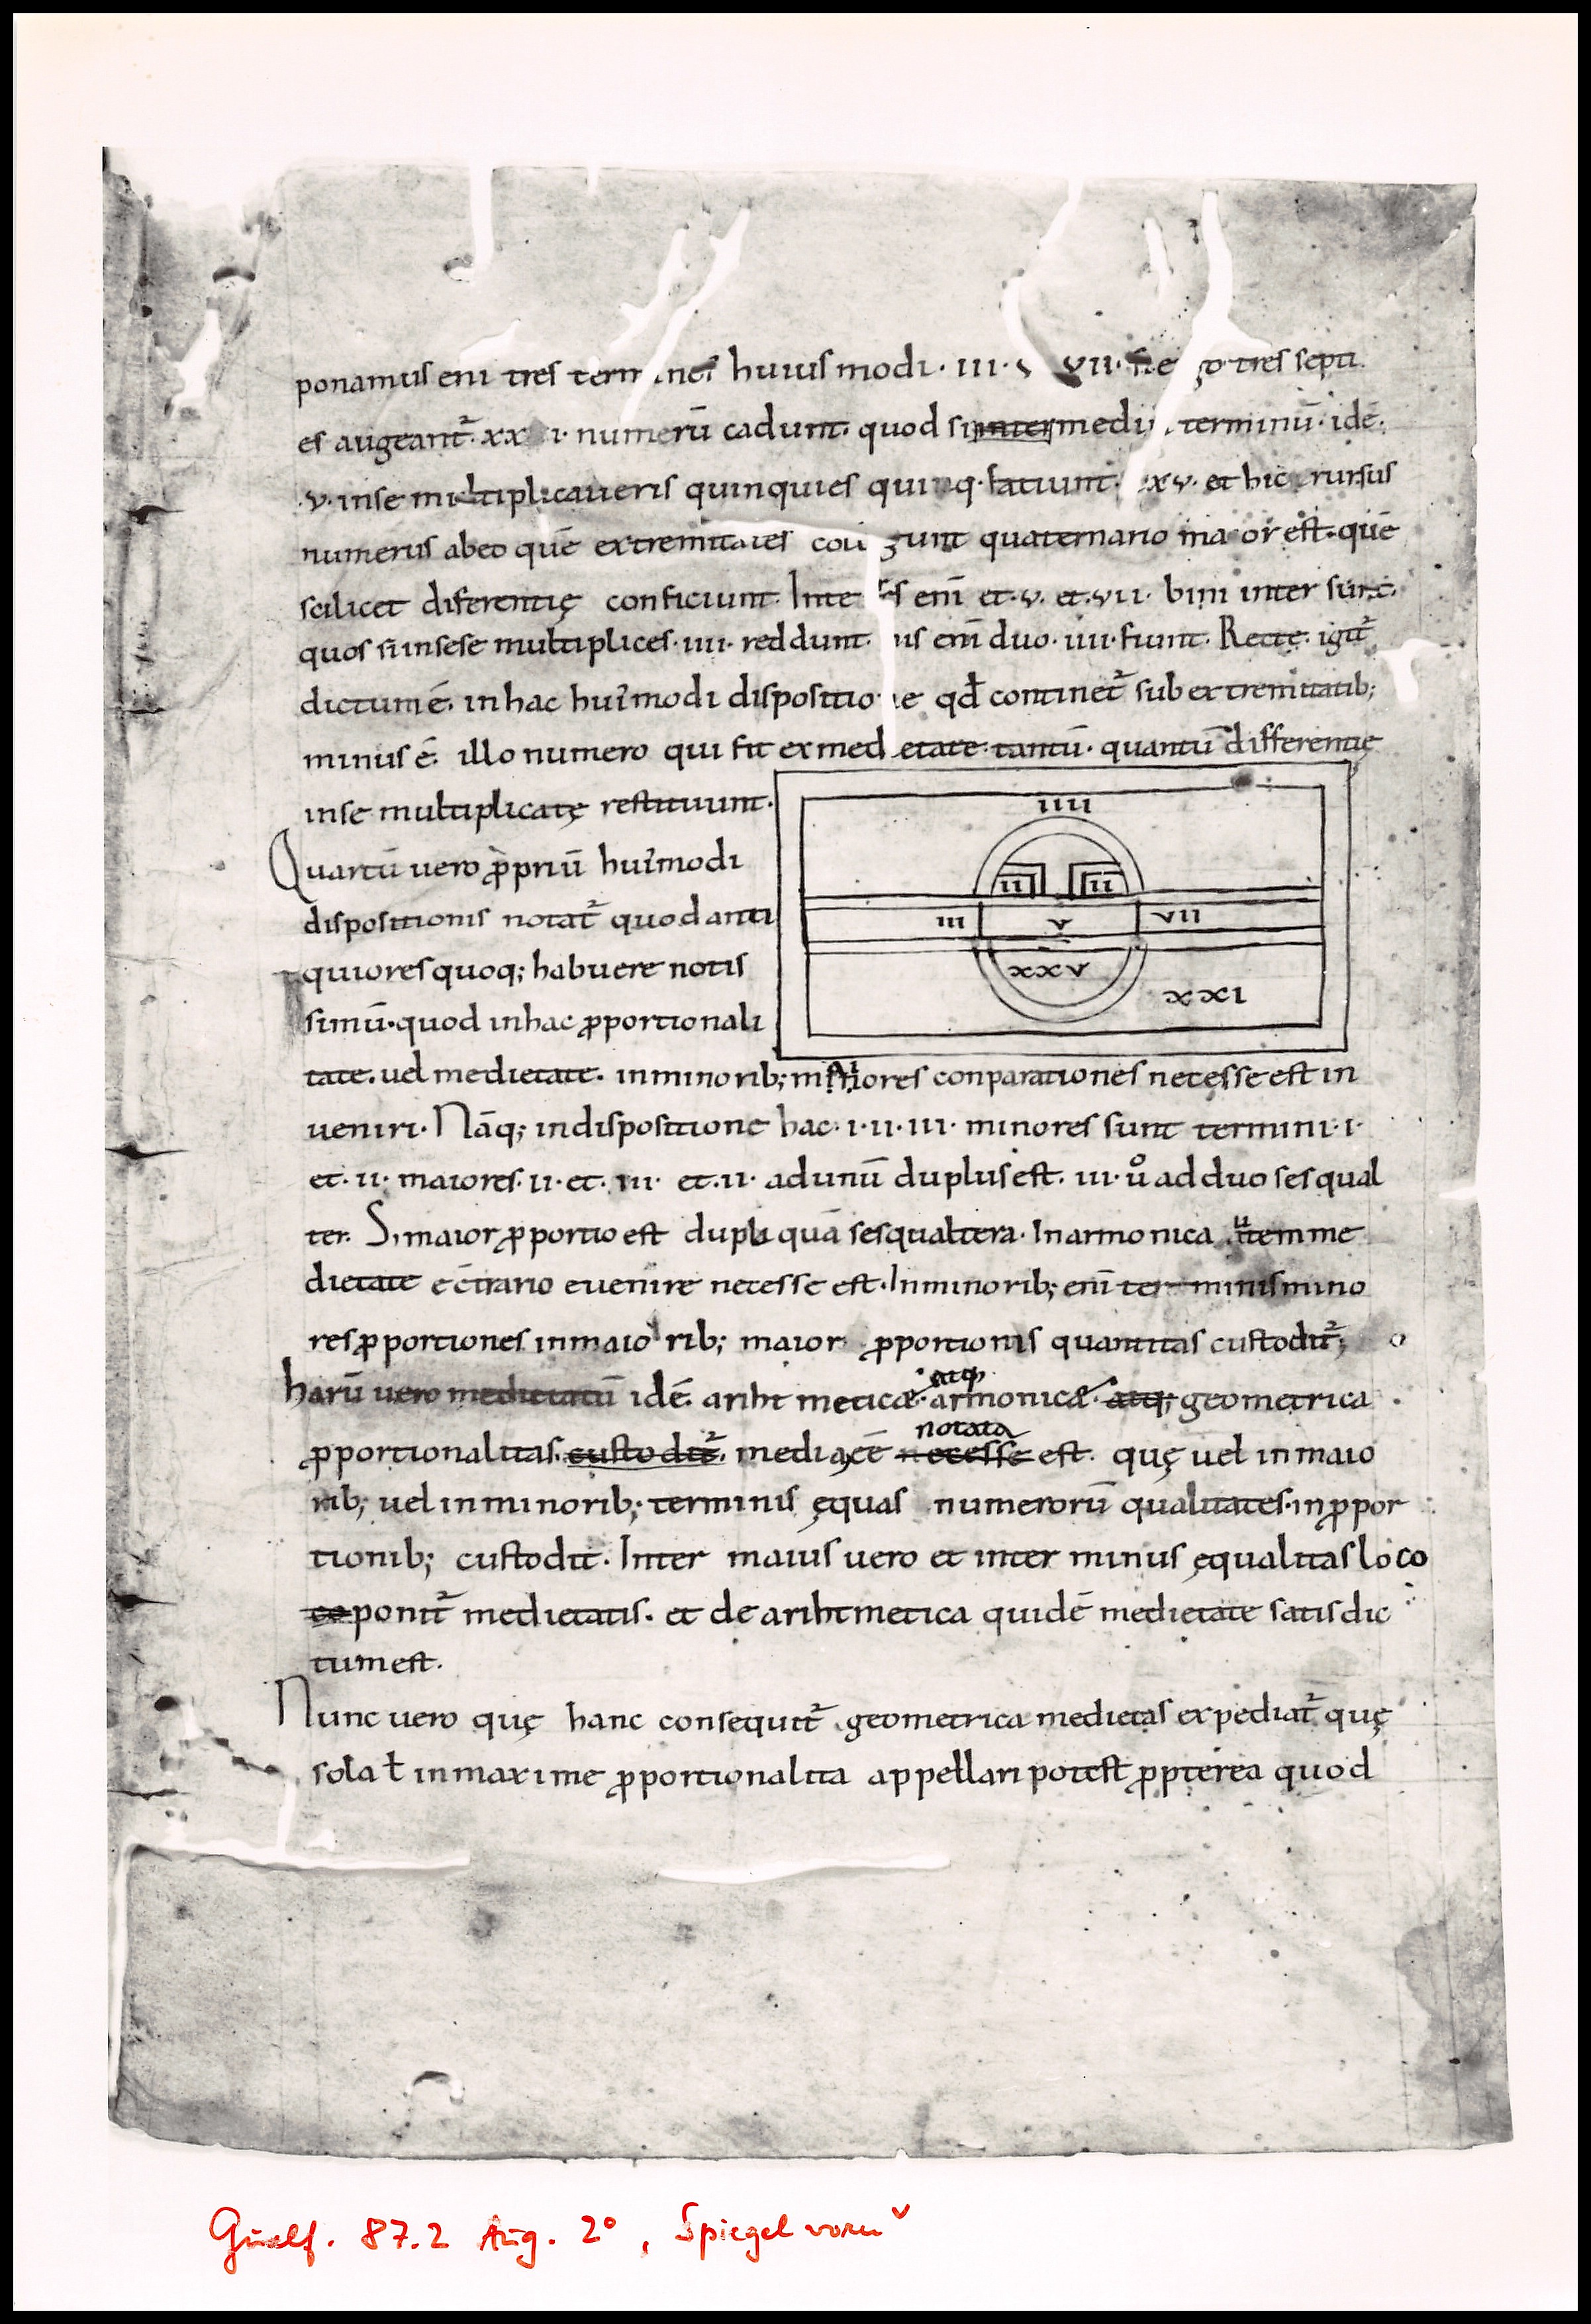 ponamus eni tres termines huiusmodi · III · VII · fi e go tres septi
es augeant̃ · xx I · numerū cadunt · quod si inter medi terminū · idē ·
· V · inse multiplicaveris quinquies quinq · faciunt · xV · et hic rursus
numerus abeo quē extremitates con gunt quaternario maior est · quē
scilicet diferentię conficiunt · Inte s enī et · V · et · VII · bini inter sunt ·
quos si insese multiplices · IIII · reddunt · is enī duo · IIII · fiunt · Recte · igit̃
dictum ē · inhac hui᷒modi dispositio e qđ continet̃ sub extremitatib;
minus ē · illo numero qui fit exmed etate · tantū · quantū differentię
inse multiplicatę restituunt ·
Quartū vero ꝓpriū hui᷒modi
dispositionis notat̃ quod anti
quiores quoq; habuere notis
simū · quod inhac ꝓportionali
tate · vel medietate · inminorib; maiores conparationes necesse est in
veniri · Nāq; indispositione hac · I · II · III · minores sunt termini · I ·
et · II · maiores · II · et · III · et · II · adunū duplus est · III · ů adduo sesqual
ter · Si maior ꝓportio est dupli quā sesqualtera · Inarmonica ů tem me
dietate e cтrario evenire necesse est · Inminorib; enī terminis mino
res ꝓportiones inmaiorib; maior ꝓportionis quantitas custodit̃;
harū vero medietatū idē · ariht meticæ · atq; armonicæ · atq; geometrica
ꝓportionalitas · custodit̃ · media cē notata necesse est · quę vel inmaio
rib; vel inminorib; terminis ęquas numerorū qualitates · inꝓpor
tionib; custodit · Inter maius vero et inter minus ęqualitas loco
co ponit̃ medietatis · et de arihtmetica quidē medietate satis dic
tum est ·
Nunc vero quę hanc consequit̃ geometrica medietas expediat̃ quę
sola ł inmaxime ꝓportionalita appellari potest ꝓpterea quod
IIII
II II
III V VII
XXV
XXI
Guelf. 87.2 Aug. 2°, Spiegel vorn v